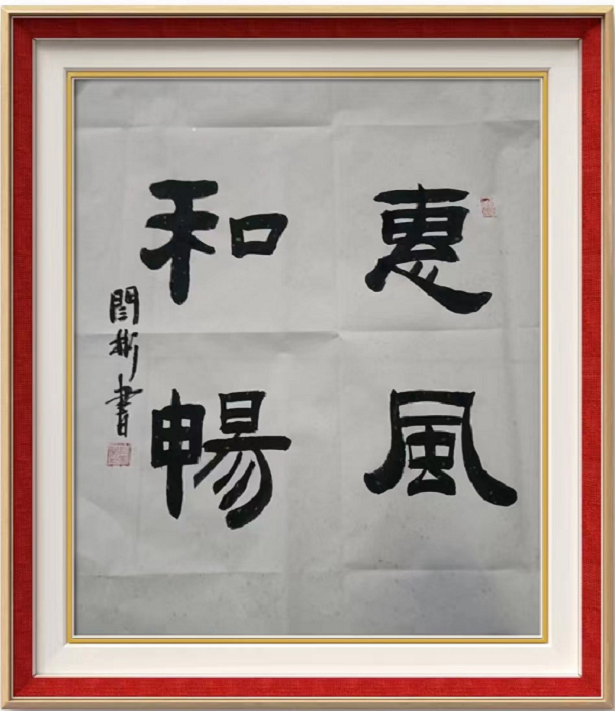 惠風
和暢
閆彬書